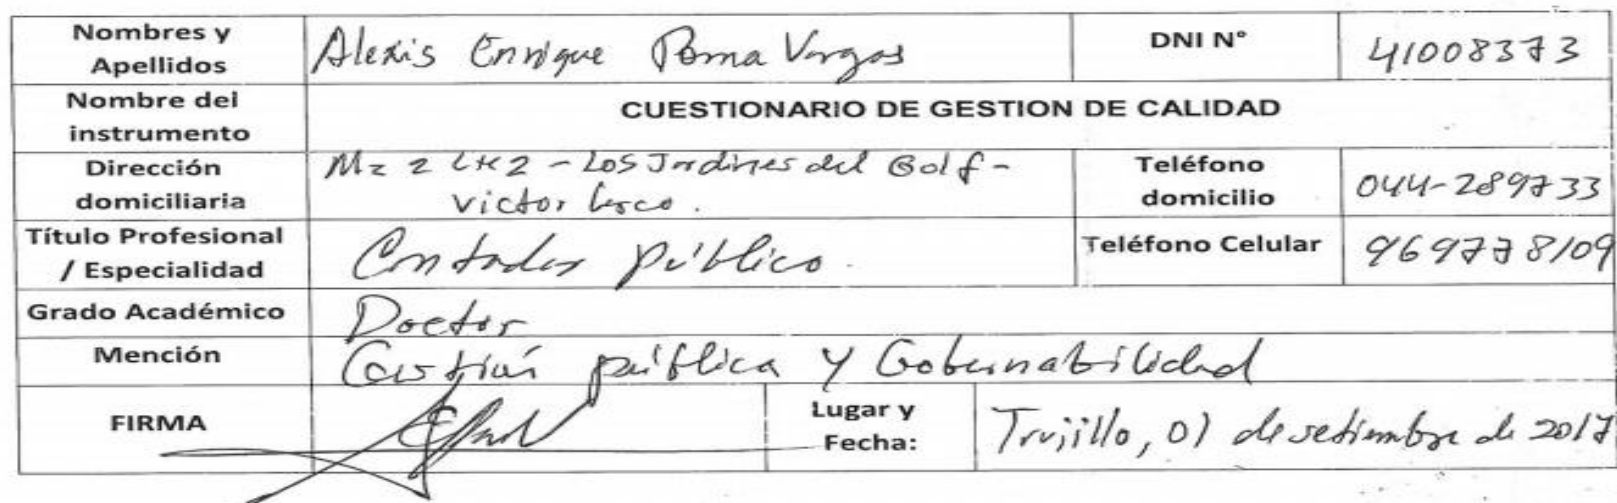 Nombres y Apellidos Alexis Enrique Poma Vargas DNI N° 41008373
Nombre del instrumento CUESTIONARIO DE GESTION DE CALIDAD
Dirección domiciliaria Mz 2 Lt 2 - Los Jardines del Golf - Teléfono domicilio 044-289733
Victor Larco.
Título Profesional / Especialidad Contador público. Teléfono Celular 969778109
Grado Académico Doctor
Mención Gestión pública y Gobernabilidad
FIRMA Lugar y Fecha: Trujillo, 01 de setiembre de 2017